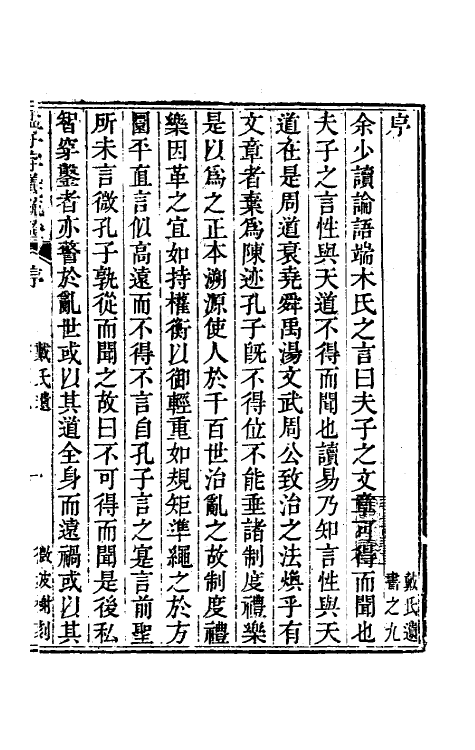 序
戴氏遺
書之九
余少讀論語端木氏之言曰夫子之文章可得而聞也
夫子之言性與天道不得而聞也讀易乃知言性與天
道在是周道衰堯舜禹湯文武周公致治之法煥乎有
文章者棄爲陳迹孔子旣不得位不能垂諸制度禮樂
是以爲之正本溯源使人於千百世治亂之故制度禮
樂因革之宜如持權衡以御輕重如規矩準繩之於方
圜平直言似高遠而不得不言自孔子言之寔言前聖
所未言微孔子孰從而聞之故曰不可得而聞是後私
智穿鑿者亦警於亂世或以其道全身而遠禍或以其
孟子字義疏證 序 戴氏遺 一 微波榭刻